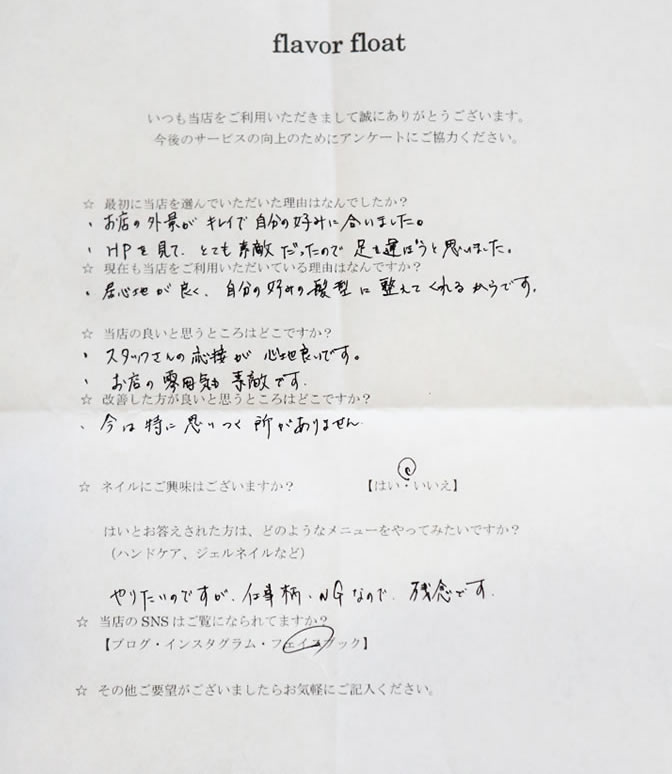 flavor float
いつも当店をご利用いただきまして誠にありがとうございます。
今後のサービスの向上のためにアンケートにご協力ください。
☆ 最初に当店を選んでいただいた理由はなんでしたか？
・お店の外景がキレイで自分の好みに合いました。
・HPを見て、とても素敵だったので足を運ぼうと思いました。
☆ 現在も当店をご利用いただいている理由はなんですか？
・居心地が良く、自分の好みの髪型に整えてくれるからです。
☆ 当店の良いと思うところはどこですか？
・スタッフさんの応接が心地良いです。
・お店の雰囲気も素敵です。
☆ 改善した方が良いと思うところはどこですか？
、今は特に思いつく所がありません
☆ ネイルにご興味はございますか？ 【はい・いいえ】
はいとお答えされた方は、どのようなメニューをやってみたいですか？
（ハンドケア、ジェルネイルなど）
やりたいのですが、仕事柄、NGなので、残念です。
☆ 当店のSNSはご覧になられてますか？
【ブログ・インスタグラム・フェイスブック】
☆ その他ご要望がございましたらお気軽にご記入ください。